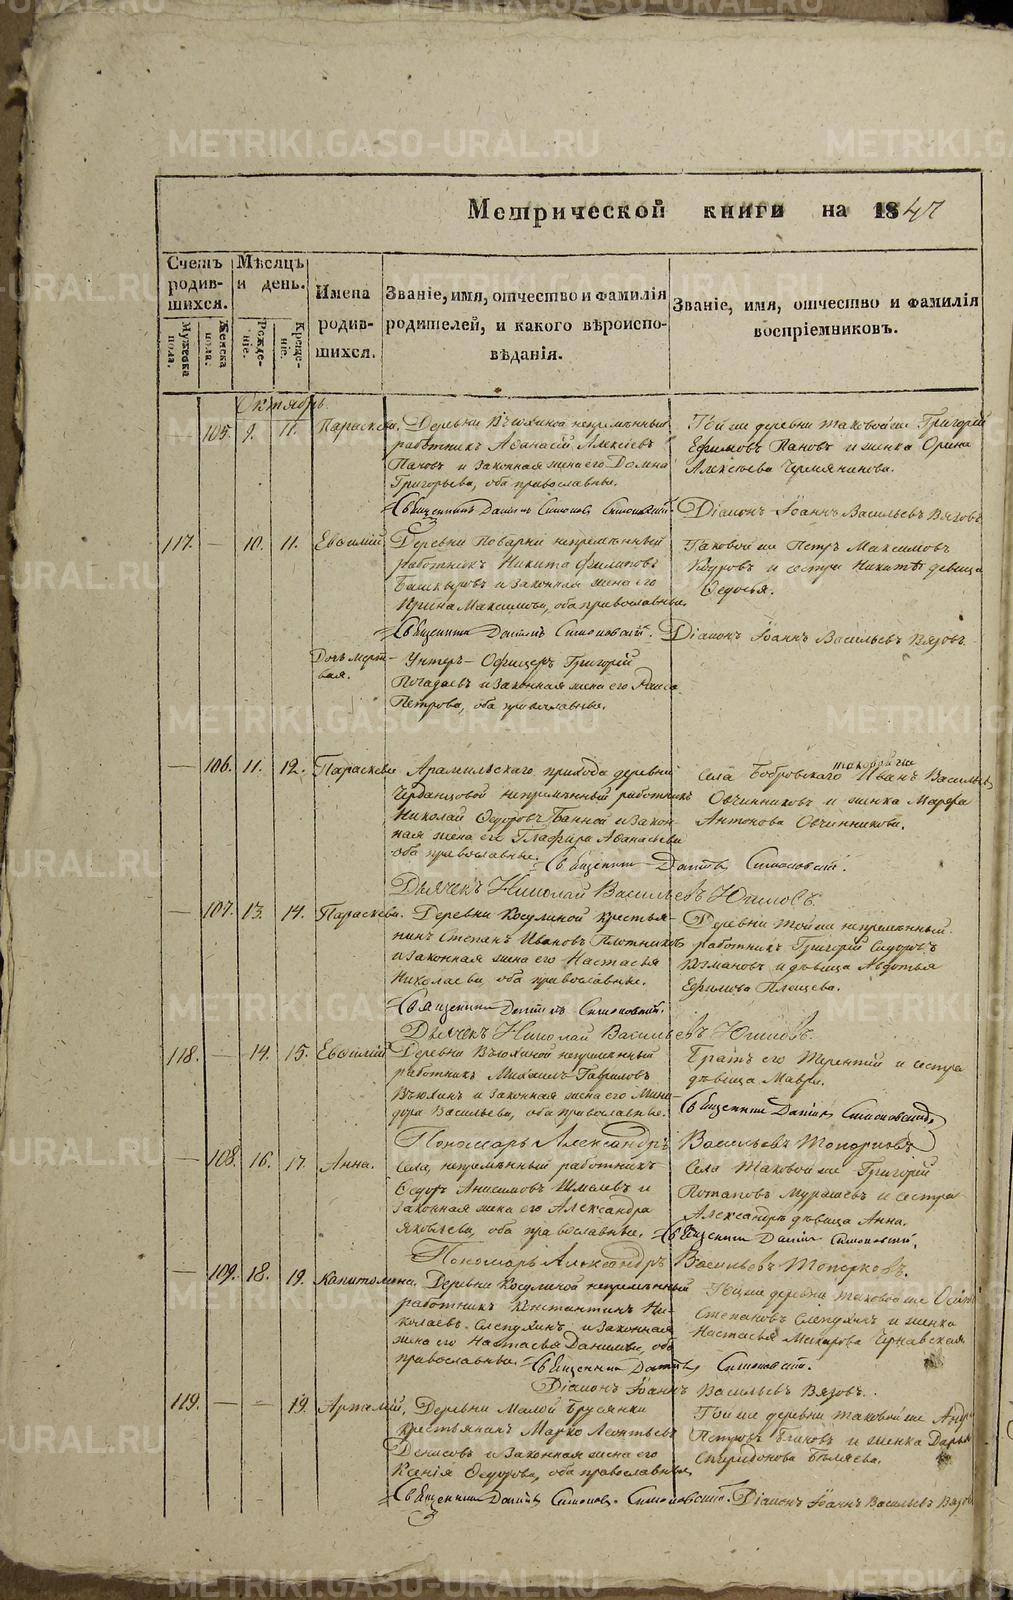 Метрической книги на 1847
Счетъ родив-шихся.
Мѣсяцъ и день.
Имена родив-шихся.
Званіе, имя, отчество и фамилія родителей, и какого вѣроиспо-вѣданія.
Званіе, имя, отчество и фамилія воспріемниковъ.
Мужеска пола.
Женска пола.
Рожде-ніе.
Креще-ніе.
Октябрь.
— 105. 9. 11. Параскева.
Деревни Вьюхиной непремѣнный
работникъ Аѳанасій Алексѣевъ
Пановъ и законная жена его Домна
Григорьева, оба православные.
Той же деревни таковой же Григорій
Ефимовъ Пановъ и женка Орина
Алексѣева
Священникъ Даніилъ Симоновъ Симоновскій.
Діаконъ Іоаннъ Васильевъ Вязовъ
117. — 10. 11. Евѳимій.
Деревни Поварни непремѣнный
работникъ Никита Филиповъ
Башкыровъ и законная жена его
Ирина Максимова, оба православные.
Таковой же Петръ Максимовъ
и сестра Никиты девица
Ѳедосья.
Священникъ Даніилъ Симоновскій.
Діаконъ Іоаннъ Васильевъ Вязовъ.
Дочь мерт-
вая.
Унтеръ-Офицеръ Григорій
и законная жена его
Петрова, оба православные.
— 106. 11. 12. Параскева
Арамильскаго прихода деревни
непремѣнный работникъ
Николай Ѳедоровъ Банной и закон-
ная жена его Глафира Аѳанасьева
оба православные.
таковой же
Села Бобровскаго Иванъ Васильевъ
Овчинниковъ и женка Марѳа
Антонова Овчинникова.
Священникъ Даніилъ Симоновскій.
Дьячекъ Николай Васильевъ Югиловъ.
— 107. 13. 14. Параскева.
Деревни Косулиной крестья-
нинъ Степанъ Ивановъ Плотниковъ
и законная жена его Настасья
Николаева, оба православные.
Деревни той же непремѣнный
работникъ Григорій Сидоровъ
и дѣвица Авдотья
Ефимова Плещева.
Священникъ Даніилъ Симоновскій.
Дьячекъ Николай Васильевъ Югиловъ.
118. — 14. 15. Евѳимій
Деревни Вьюхиной непремѣнный
работникъ Михаилъ Гавриловъ
Вьюхинъ и законная жена его Мини-
дора Васильева, оба православные.
Братъ его Терентій и сестра
дѣвица Мавра.
Священникъ Даніилъ Симоновскій.
Пономарь Александръ Васильевъ Топорковъ.
— 108. 16. 17. Анна.
Села, непремѣнный работникъ
Ѳедоръ Анисимовъ Шмалевъ и
законная жена его Александра
Яковлева, оба православные.
Села таковой же Григорій
Потаповъ Мурашевъ и сестра
Александръ дѣвица Анна.
Священникъ Даніилъ Симоновскій.
Пономарь Александръ Васильевъ Топорковъ.
— 109. 18. 19. Капитолина.
Деревни Косулиной непремѣнный
работникъ Константинъ Ни-
колаевъ Слепухинъ и законная
жена его Настасья Данилова, оба
православные.
Той же деревни таковой же Осипъ
Степановъ Слепухинъ и женка
Настасья Чернавская
Священникъ Даніилъ Симоновскій.
Діаконъ Іоаннъ Васильевъ Вязовъ.
119. — — 19. Артемій.
Деревни Малой Брусянки
крестьянинъ Марко Леонтьевъ
Денисовъ и законная жена его
Ксенія Ѳедорова, оба православные.
Той же деревни таковой же
Петровъ и женка Дарья
Спиридонова Бѣляева.
Священникъ Даніилъ Симоновъ Симоновскій. Діаконъ Іоаннъ Васильевъ Вязовъ
METRIKI.GASO-URAL.RU